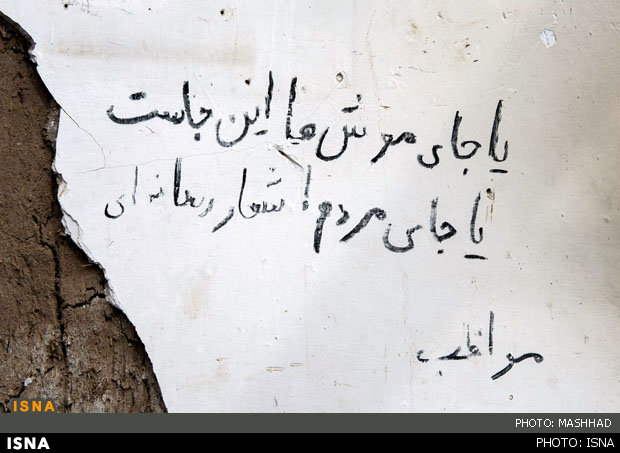 یا جای موش ها این جاست
یا جای مردم! شعار رسانه ای
مواظب
ISNA
PHOTO: MASHHAD
ISNA
PHOTO: ISNA